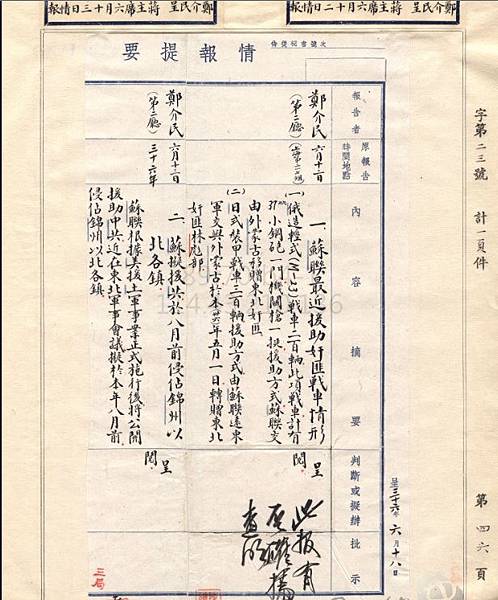 鄭介民呈 蔣主席六月十二日情報
鄭介民呈 蔣主席六月十三日情報
字第二三號 計一頁件
第四六頁
情報提要
呈三十六年六月十八日
報告者
原報告時間地點
內容摘要
判斷或擬辦
批示
鄭介民
(第二廳)
六月十二日
一、蘇聯最近援助奸匪戰車情形
(一)俄造輕式戰車二百輛此項戰車計有
37小鋼砲一門機關槍一挺援助方式蘇聯交
由外蒙古移贈東北奸匪
(二)日式裝甲戰車三百輛援助方式由蘇聯遠東
軍交與外蒙古於本(卅六)年五月一日轉贈東北
奸匪林彪部
呈
閱
此報有
查明
鄭介民
(第二廳)
六月十二日
三十六年
二、蘇擬後共於八月前侵佔錦州以
北各鎮
蘇聯根據美援土軍事業正式施行後將公開
援助中共近在東北軍事會議擬於本年八月前
侵佔錦州以北各鎮
呈
閱
三局